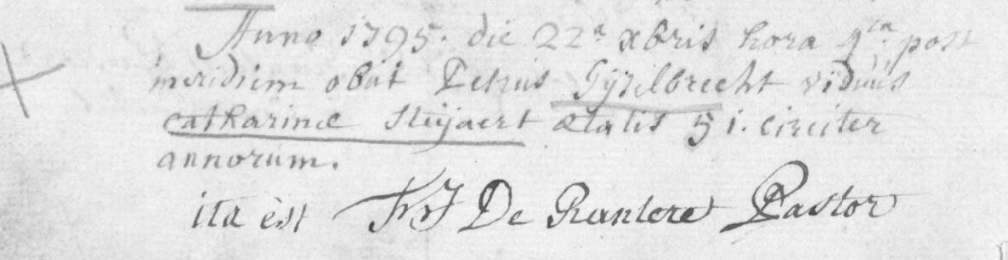 Anno 1795. die 22a xbris hora 9ta post
meridiem obiit Petrus Gijselbrecht viduus
catharinæ Steijaert ætatis 51. circiter
annorum.
ita est De Pastor